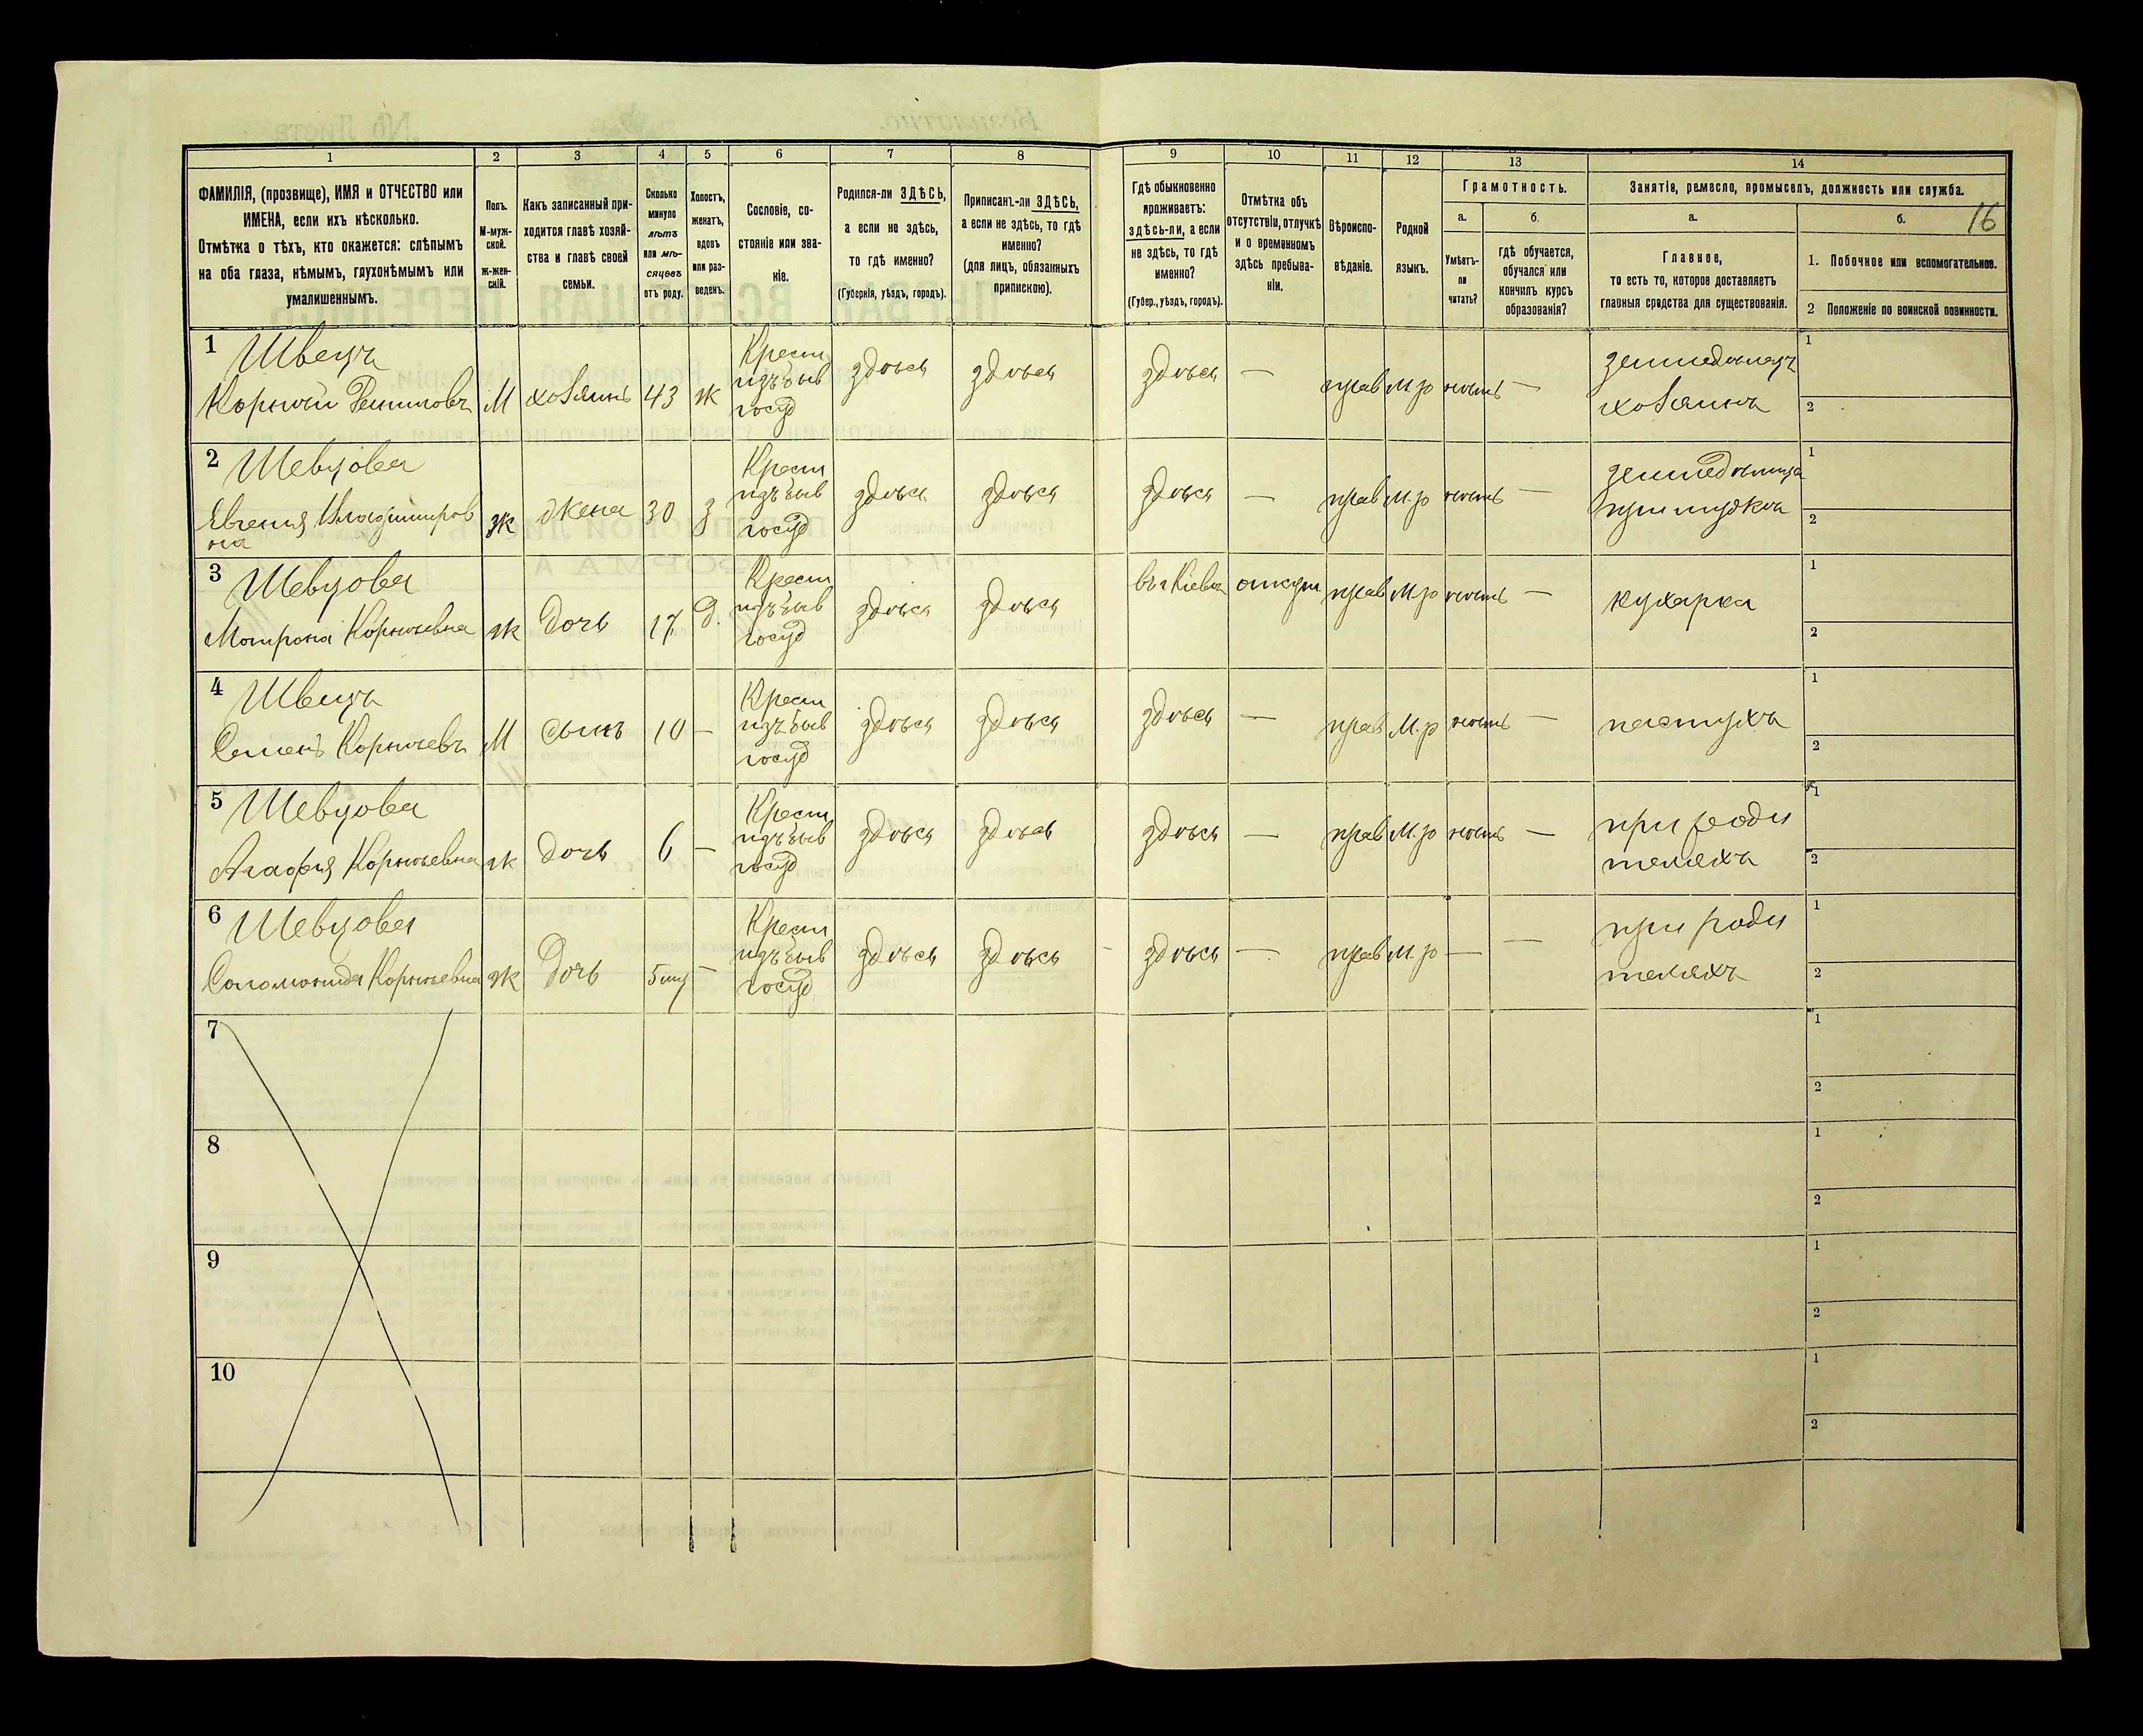 1 2 3 4 5 6 7 8 9 10 11 12 13 14
ФАМИЛІЯ, (прозвище), ИМЯ и ОТЧЕСТВО или
ИМЕНА, если ихъ нѣсколько.
Отмѣтка о тѣхъ, кто окажется: слѣпымъ
на оба глаза, нѣмымъ, глухонѣмымъ или
умалишеннымъ.
Полъ.
М-муж-
ской.
ж-жен-
скій.
Какъ записанный при-
ходится главѣ хозяй-
ства и главѣ своей
семьи.
Сколько
минуло
лѣтъ
или мѣ-
сяцевъ
отъ роду.
Холостъ,
женатъ,
вдовъ
или раз-
веденъ.
Сословіе, со-
стояніе или зва-
ніе.
Родился-ли ЗДѢСЬ,
а если не здѣсь,
то гдѣ именно?
(Губернія, уѣздъ, городъ).
Приписанъ-ли ЗДѢСЬ,
а если не здѣсь, то гдѣ
именно?
(для лицъ, обязанныхъ
припискою).
Гдѣ обыкновенно
проживаетъ:
здѣсь-ли, а если
не здѣсь, то гдѣ
именно?
(Губер., уѣздъ, городъ).
Отмѣтка объ
отсутствіи, отлучкѣ
и о временномъ
здѣсь пребыва-
ніи.
Вѣроиспо-
вѣданіе.
Родной
языкъ.
Грамотность.
а.
Умѣетъ-
ли
читать?
б.
гдѣ обучается,
обучался или
кончилъ курсъ
образованія?
Занятіе, ремесло, промыселъ, должность или служба.
а.
Главное,
то есть то, которое доставляетъ
главныя средства для существованія.
б.
16
1. Побочное или вспомогательное.
2 Положеніе по воинской повинности.
1 Швецъ
Корнѣй М хозяинъ 43 ж
Крест
изъ быв
госуд
здѣсь здѣсь здѣсь — прав м.р нѣтъ —
земледѣлецъ
хозяинъ
1
2
2 Шевцова
Евгенія Владимиров
на
ж жена 30 з
Крест
изъ быв
госуд
здѣсь здѣсь здѣсь — прав м.р нѣтъ —
земледѣлица
при мужѣ
1
2
3 Шевцова
Мотрона Корнѣевна ж дочь 17 д.
Крест
изъ быв
госуд
здѣсь здѣсь въ г Кіевѣ отсут. прав м.р нѣтъ —
кухарка
1
2
4 Швецъ
Семенъ Корнѣевъ М сынъ 10 —
Крест
изъ быв
госуд
здѣсь здѣсь здѣсь — прав м.р нѣтъ —
пастухъ
1
2
5 Шевцова
Агафія Корнѣевна ж дочь 6 —
Крест
изъ быв
госуд
здѣсь здѣсь здѣсь — прав м.р нѣтъ —
при роди
теляхъ
1
2
6 Шевцова
Соломонида Корнѣевна ж дочь 5 мц —
Крест
изъ быв
госуд
здѣсь здѣсь здѣсь — прав м.р — —
при роди
теляхъ
1
2
7
1
2
8
1
2
9
1
2
10
1
2